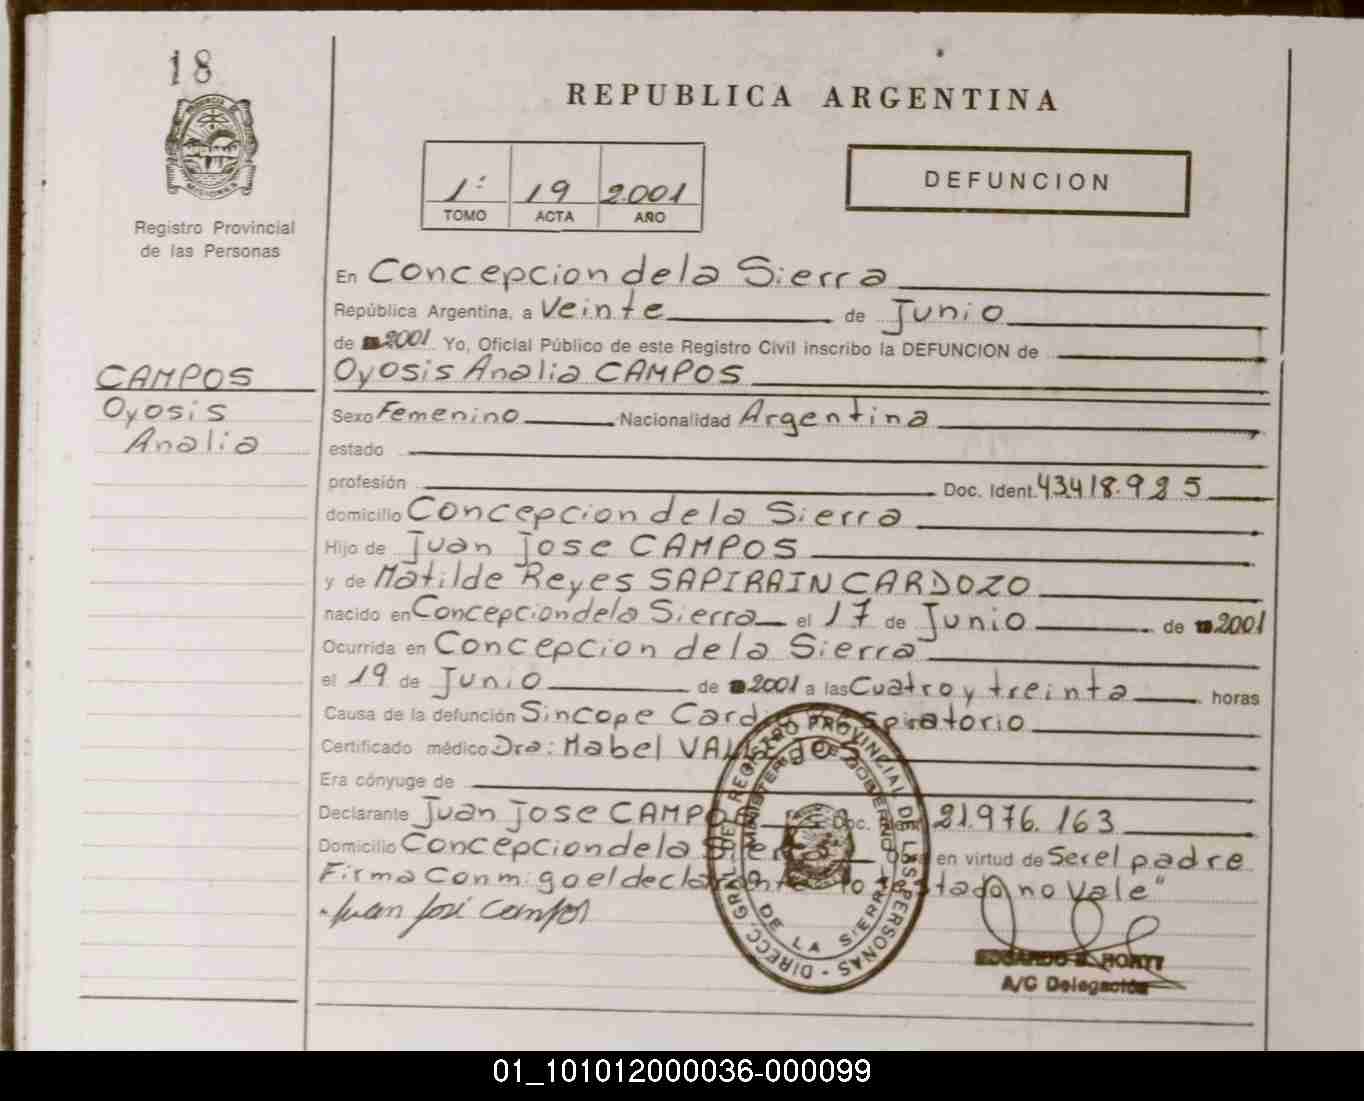 18
REPUBLICA ARGENTINA
1º 19 2.001
TOMO ACTA AÑO
DEFUNCION
Registro Provincial
de las Personas
CAMPOS
Oyosis
Analia
En Concepcion de la Sierra
República Argentina, a Veinte de Junio
de 2001 Yo, Oficial Público de este Registro Civil inscribo la DEFUNCION de
Oyosis Analia CAMPOS
Sexo Femenino Nacionalidad Argentina
estado
profesión Doc. Ident. 43.418.925
domicilio Concepcion de la Sierra
Hijo de Juan Jose CAMPOS
y de Matilde Reyes SAPIRAIN CARDOZO
nacido en Concepcion de la Sierra el 17 de Junio de 2001
Ocurrida en Concepcion de la Sierra
el 19 de Junio de 2001 a las Cuatro y treinta horas
Causa de la defunción Sincope Cardio Respiratorio
Certificado médico Dra: Mabel
Era cónyuge de
Declarante Juan Jose CAMPOS Doc. 21.976.163
Domicilio Concepcion de la Sierra en virtud de Ser el padre
Firma Conmigo el declarante "lo testado no Vale"
Juan José Campos
DIRECC. GRAL. DEL REGISTRO PROVINCIAL DE LAS PERSONAS
MINISTERIO DE GOBIERNO
DE LA SIERRA
EDUARDO
A/C Delegación
01_101012000036-000099